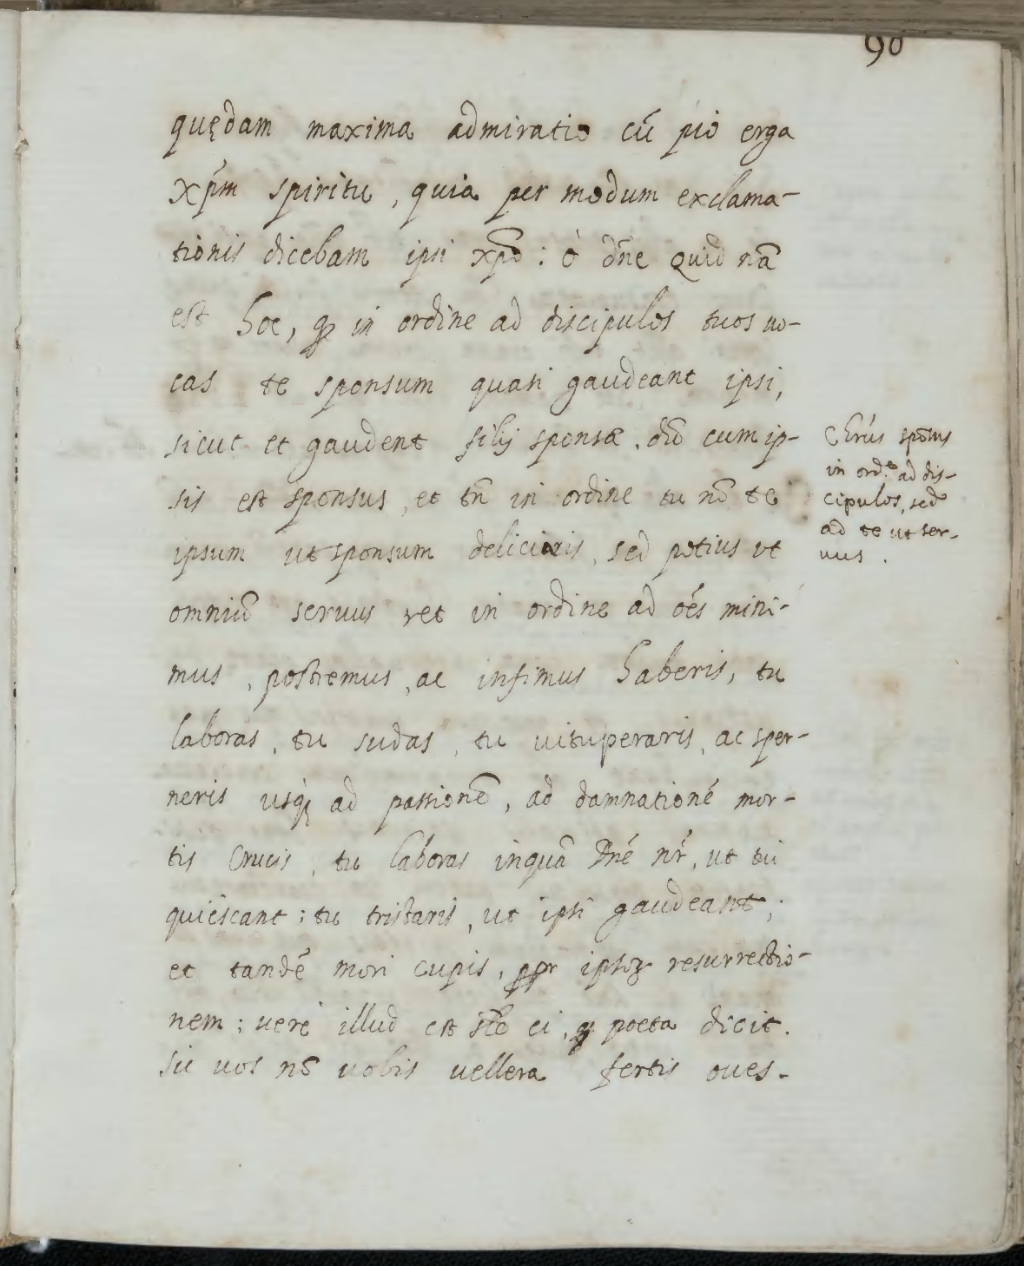 90
quędam maxima admiratio cū pio erga
Xp̄m spiritu, quia per modum exclama-
tionis dicebam ipsi xp̄o: ò dn̄e quid nā
est hoc, qd in ordine ad discipulos tuos uo-
cas te sponsum quasi gaudeant ipsi,
sicut et gaudent filij sponsæ, dū cum ip-
sis est sponsus, et tn̄ in ordine tu nō te
ipsum ut sponsum deliciaris, sed potius ut
omniū seruus et in ordine ad oēs mini-
mus, postremus, ac infimus haberis, tu
laboras, tu sudas, tu uituperaris, ac sper-
neris usq; ad passionē, ad damnationē mor-
tis Crucis, tu laboras inquā Dn̄e nr̄, ut tui
quiescant; tu tristaris, ut ipsi gaudeant;
et tandē mori cupis, ppr ipsoꝝ resurrectio-
nem; uerè illud est ei, poeta dicit.
Sic uos nō uobis uellera fertis oues.
Chrūs spōsus
in ord.e ad dis-
cipulos, sed
ad te ut ser-
uus.